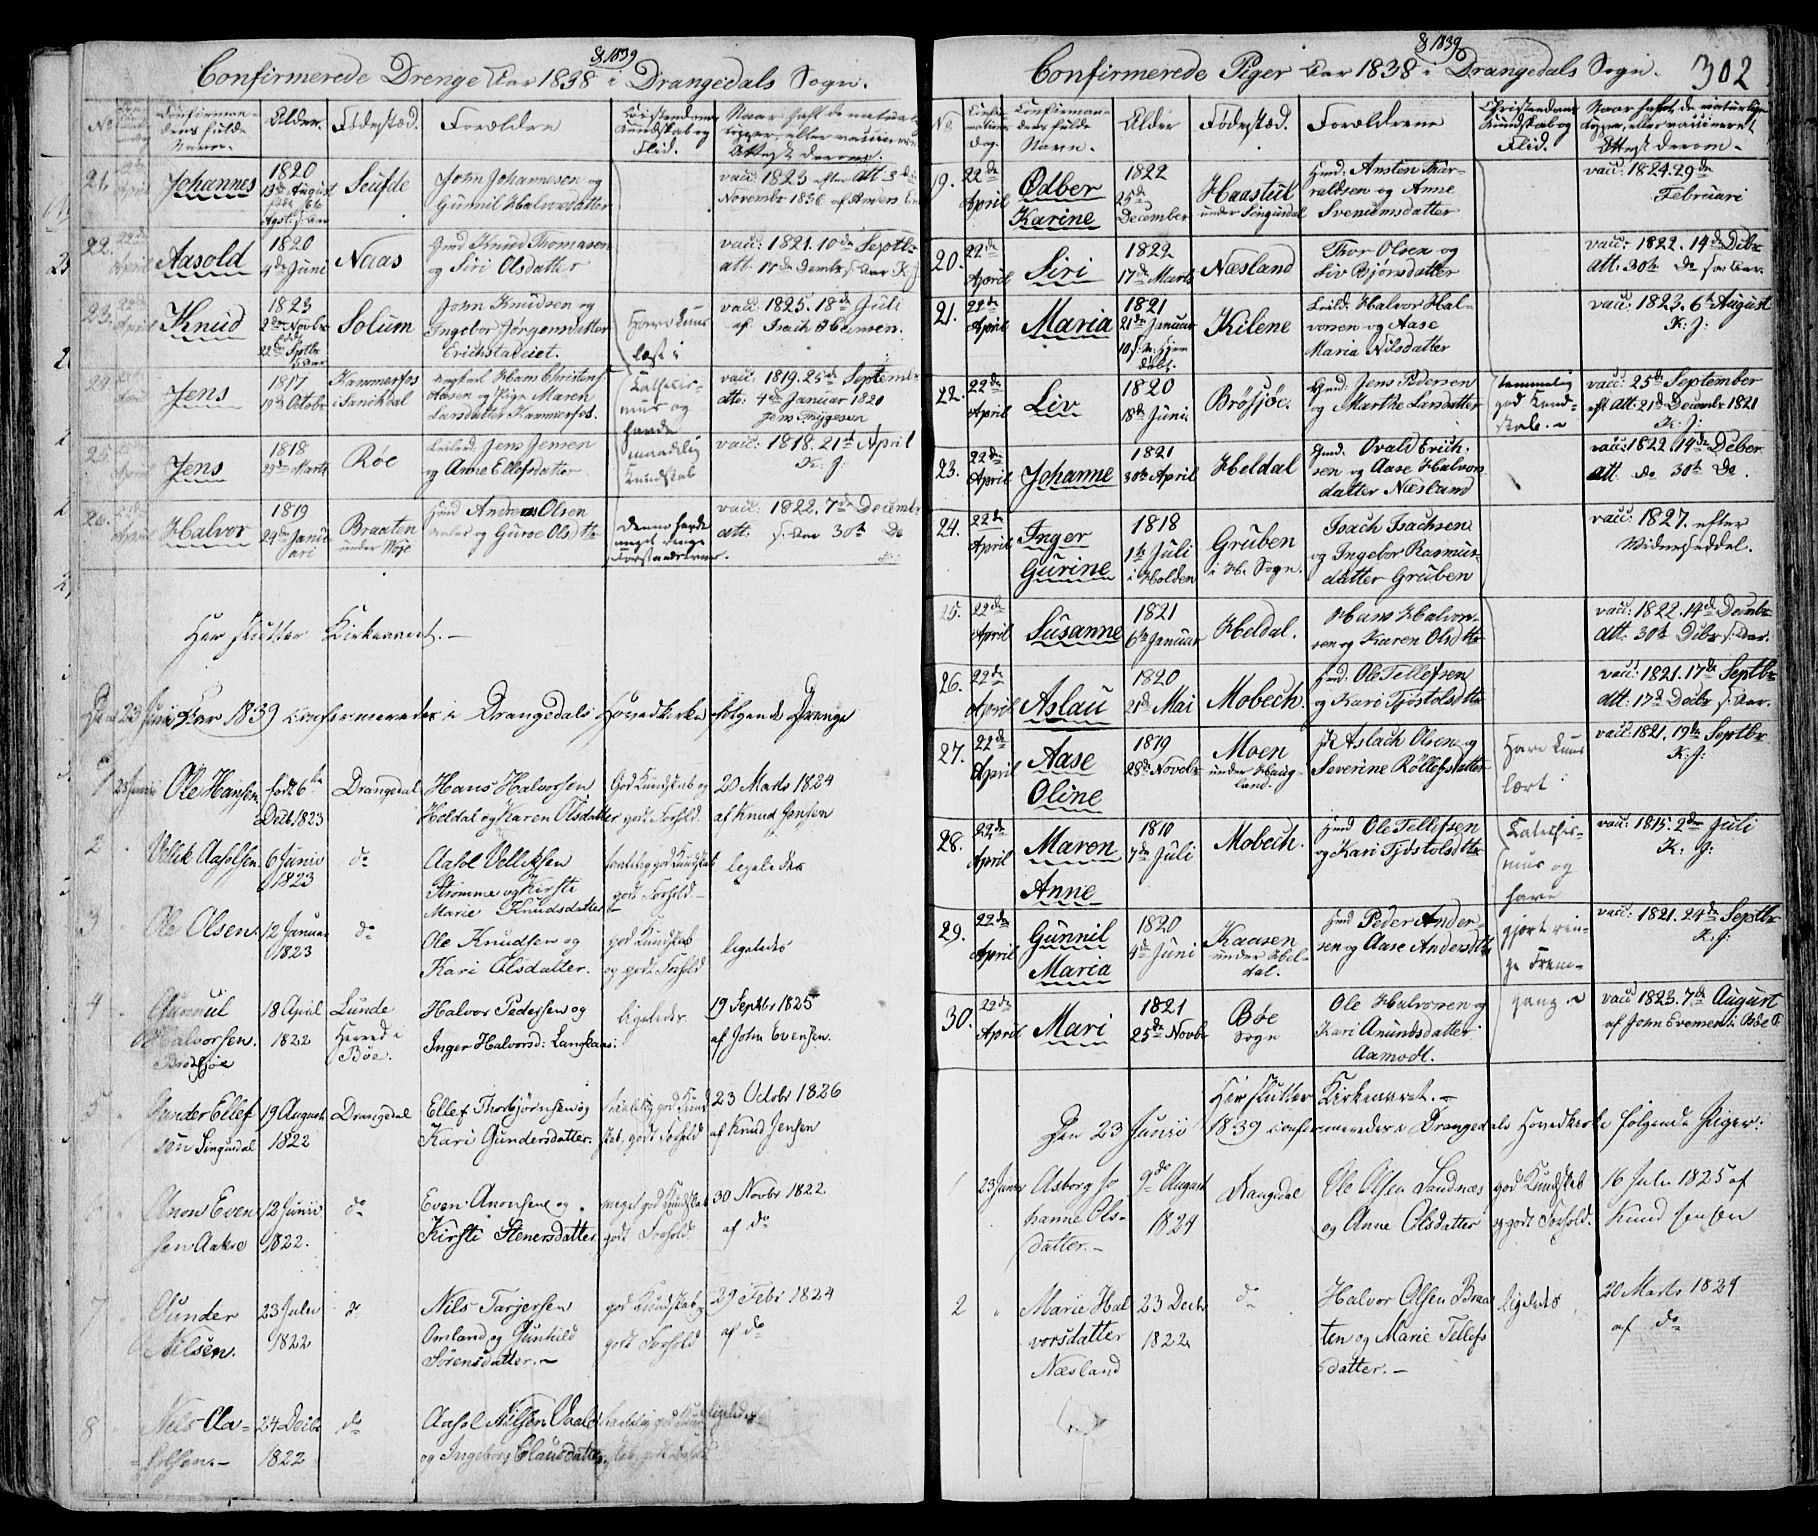 & 1839
Confirmerede Drenge Aar 1838 i Drangedals Sogn.
No. Confirmandens fulde Navn. Alder. Födested. Forældre Christendoms Kundskab og Flid. Naar haft de naturlige Kopper, eller vaccineret Attest derom.
21. 22de April Johannes 1820 13de August Seufde John Johannesen og Gunnil Halvorsdatter vacc: 1823 efter Att 3de Novembr 1836 af Anders
22. 22de April Aasold 1820 4de Juni Naas Gmd Knud Thomasen og Siri Olsdatter vacc: 1821. 10de Septbr att. 17de Decmbr s: Aar K: J:
23. 22de April Knud 1823 2den Novbr Solum John Knudsen og Ingebor Jörgensdatter vacc: 1825. 18de Juli af Isach Hansen.
24. Jens 1817 19de Octobr Kammerfos i Sanikdal Ungkarl Hans Christens. Aasen og Pige Maren Larsdatter Kammerfos. vacc: 1819. 25de Septembr att: 4de Januar 1820 Jens Tryggesen
Have kuns læst i Cathecismus og havde maadelig Kundskab
25. April Jens 1818 29de Marts Røe Jens Jensen og Anne Ellefsdatter vacc: 1818. 21de April K: J:
26. April Halvor 1819 24de Januari Braaten under Voje Gmd Andreas Olsen og Guroe Olsdtr Denne havde meget ringe Forstandsevner. vacc: 1822. 7de Decembr att: s: Aar 30te De K:
Her slutter Kirkeaaret.
Den 23 Junii Aar 1839 confirmeredes i Drangedals Hovedkirke følgende Drenge
1 23 Junii Ole Hansen. födt 6te Decb. 1823 Drangedal Hans Halvorsen Heldal og Karen Olsdatter God Kundskab og godt Forhold 20 Marts 1824 af Knud Jensen
2 Vellik Aasolsen 6 Junii 1823 do Aasol Velliksen Strömme og Kirsti Marie Knudsdatter temmelig god Kundskab godt Forhold ligeledes
3 Ole Olsen. 12 Januar 1823 do Ole Knudsen og Kari Olsdatter. god Kundskab og godt Forhold ligeledes
4 Gunnul Halvorsen. Brödsjøe 18 April 1822 Lunde Herred i Böe. Halvor Pedersen og Inger Halvorsd: Langkaas: ligeledes 19 Septbr 1825 af John Evensen.
5 Gunder Ellefsön Singusdal 19 August 1822 Drangedal Ellef Thorbjörnsen og Kari Gundersdatter. temmelig god Kundskab, godt Forhold 23 Octobr 1826 af Knud Jensen
6 Anon Evensen Aakre 12 Junii 1822. do Even Anonsen og Kirsti Stenersdatter meget god Kundskab godt Forhold 30 Novbr 1822. af do
7 Gunder Nilsen. 23 Julii 1822 do Nils Tarjersen Omland og Gunhild Sörensdatter. god Kundskab, godt Forhold 29 Febr 1824 af do
8 Nils Aasolsen. 24 Decbr 1822 do Aasol Nilsen Vaale og Ingeborg Clausdatter temmelig god Kundskab, godt Forhold ligeledes
& 1839
Confirmerede Piger Aar 1838 i Drangedals Sogn. 302
No. Confirmations Dag. Confirmandens fulde Navn. Alder Födested. Forældrene Christendoms Kundskab og Flid. Naar haft de naturlige Kopper, eller vaccineret Attest derom.
19. 22de April Odber Karine 1822 25de December Haastul under Singusdal Gmd: Ansten Tharaldsen og Anne Svenumsdatter vacc: 1824. 29de Februari
20. 22de April Siri 1822 17de Marts Næsland Thor Olsen og Liv Bjørsdatter vacc: 1822. 14de Dcbr Att: 30te De s: Aar.
21. 22de April Maria 1821 21de Januar Kilene Leild: Halvor Halvorsen og Aase Maria Nilsdatter vacc: 1823. 6te August K: J:
22. 22de April Liv 1820 18de Juni Brösjøe. Gmd: Jens Pedersen og Marthe Larsdatter temmelig god Kundskab. vacc: 25de September eft Att: 21de Decembr 1821 K: J:
23. 22de April Johanne 1821 30te April Heldal Gmd. Ovald Erichsen og Aase Halvorsdatter Næsland vacc: 1822. 14de Dcber att do 30te De.
24. 22de April Inger Gurine 1818 1te Juli i Holden Gruben i H: Sogn. Isach Isachsen og Ingebor Rasmusdatter Gruben vacc: 1827. efter Widerseddel.
25. 22de April Susanne 1821 6te Januar Heldal. Hans Halvorsen og Karen Olsdtr vacc: 1822. 14de Decmbr Att. 30te Dcbr s: Aar.
26. 22de April Aslau 1820 21de Mai Mobech. Gmd: Ole Tellefsen og Kari Tjöstolsdtr vacc: 1821. 17de Septbr Att: 17de Decbr s: Aar.
27. 22de April Aase Oline 1819 28de Novbr Moen under Haugland. Aslach Olsen og Severine Röllefsdatter vacc: 1821. 19de Septbr K: J:
28. 22de April Maren Anne 1810 7de Juli Mobech. Gmd Ole Tellifsen og Kari Tjöstolsdtr vacc: 1815. 2den Juli K: J:
29. 22de April Gunnil Maria 1820 4de Juni Kaasen under Heldal. Gmd Peder Andersen og Aase Andersdtr vacc: 1821. 24de Septbr K: J:
30. 22de April Mari 1821 25de Novbr Bøe Sogn Ole Halvorsen og Kari Anundsdatter Aamodt. vacc 1823. 7de August af John Evensen i Bøe
Have kuns lært Catechismus og have gjort ringe Fremgang
Her slutter Kirkeaaret.
Den 23 Junii 1839 confirmeredes i Drangedals Hovedkirke følgende Piger:
1 23 Junii Asborg Johanne Olsdatter. 9de August 1824 Drangedal Ole Olsen Sandnæs og Anne Olsdatter god Kundskab og godt Forhold. 16 Julii 1825 af Knud Jensen
2 Marie Halvorsdatter Næsland 23 Decbr 1822 do Halvor Olsen Braaten og Marie Tellefsdatter. ligeledes 20 Marts 1824 af do